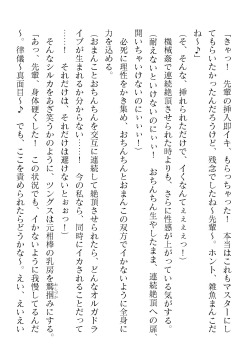 「きゃっ！　先輩の挿入即イキ、もらっちゃった！　本当はこれもマスターにし
てもらいたかったんだろうけど、残念でしたね～先輩～。ホント、雑魚まんこだ
ね～♪」
（そ、そんな、挿れられただけで、イくなんてぇぇぇっ！）
機械姦で連続絶頂させられた時よりも、さらに性感が上がっている気がする。
（耐えないといけないのにぃぃ！　おちんちん生やしたまま、連続絶頂への扉、
開いちゃいけないのにぃぃ！）
必死に理性をかき集め、おちんちんとおまんこの双方でイかないように全身に
力を込める。
（おまんことおちんちんを交互に連続して絶頂させられたら、どんなオルガドラ
イブが生まれるか分からない……！　今の私なら、同時にイカされることだって
……！　それだけは、それだけは避けないとぉぉっ！）
そんなシルカをあざ笑うかのように、ツングスは元相棒の乳房を鷲掴みにする。
「あっ、先輩、身体硬くした！　この状況でも、イかないように我慢してるんだ
～。律儀～真面目～♪　でも、ここを責められたらどうかな～。えい、えいえい